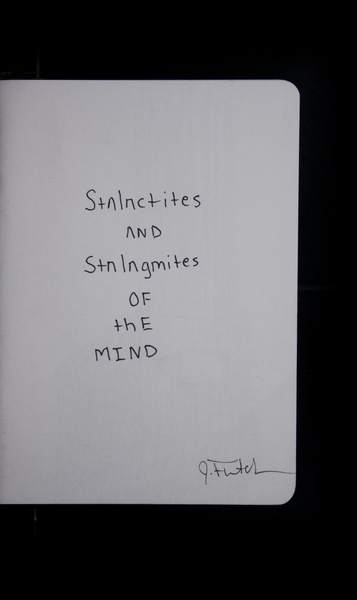 StΛlΛctites
ΛND
StΛlΛgmites
OF
thE
MIND
J. Futch